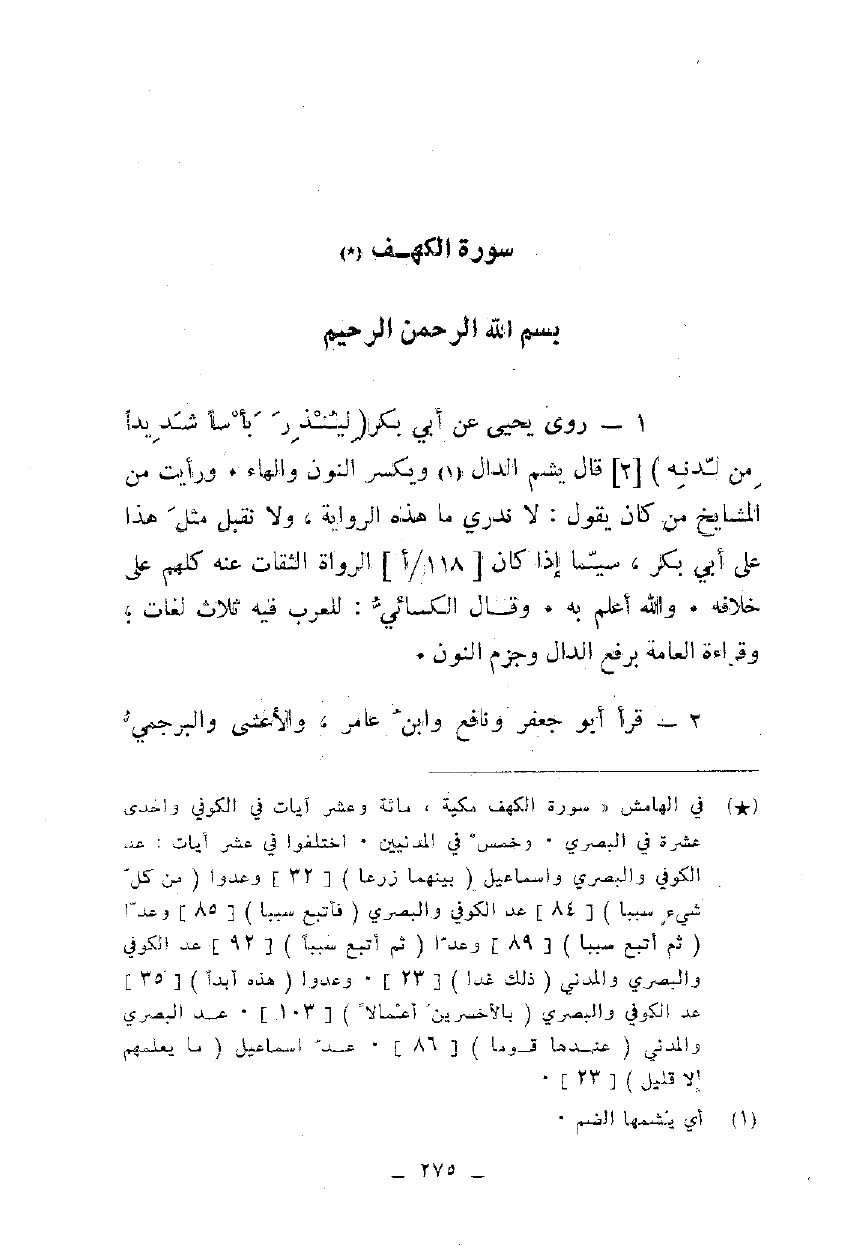 سورة الكهـف (★)
بسم الله الرحمن الرحيم
١ — روى يحيى عن أبي بكر ( لِيُنْذِرَ بَأْساً شَدِيداً
مِن لَدنِه ) [٢] قال يشم الدال (١) ويكسر النون والهاء ٠ ورأيت من
المشايخ من كان يقول : لا ندري ما هذه الرواية ، ولا نقبل مثلَ هذا
على أبي بكر ، سيّما إذا كان [ ١١٨/أ ] الرواة الثقات عنه كلهم على
خلافه ٠ والله أعلم به ٠ وقـال الكسائيُّ : للعرب فيه ثلاث لغات ،
وقراءة العامة برفع الدال وجزم النون ٠
٢ — قرأ أبو جعفر ونافع وابنُ عامر ، والأعشى والبرجميُّ
(★) في الهامش « سورة الكهف مكية ، مائة وعشر آيات في الكوفي واحدى
عشرة في البصري ٠ وخمسٌ في المدنيين ٠ اختلفوا في عشر آيات : عد
الكوفي والبصري واسماعيل ( بينهما زرعا ) [ ٣٢ ] وعدوا ( من كلّ
شيءٍ سببا ) [ ٨٤ ] عد الكوفي والبصري ( فأتبع سببا ) [ ٨٥ ] وعدّا
( ثم أتبع سببا ) [ ٨٩ ] وعدّا ( ثم أتبع سبباً ) [ ٩٢ ] عد الكوفي
والبصري والمدني ( ذلك غدا ) [ ٢٣ ] ٠ وعدوا ( هذه أبداً ) [ ٣٥ ]
عد الكوفي والبصري ( بالأخسرينَ أعمالاً ) [ ١٠٣ ] ٠ عـد البصري
والمدني ( عنـدها قـوما ) [ ٨٦ ] ٠ عـدّ اسماعيل ( ما يعلمهم
إلا قليل ) [ ٢٣ ] ٠
(١) أي يُشمها الضم ٠
— ٢٧٥ —